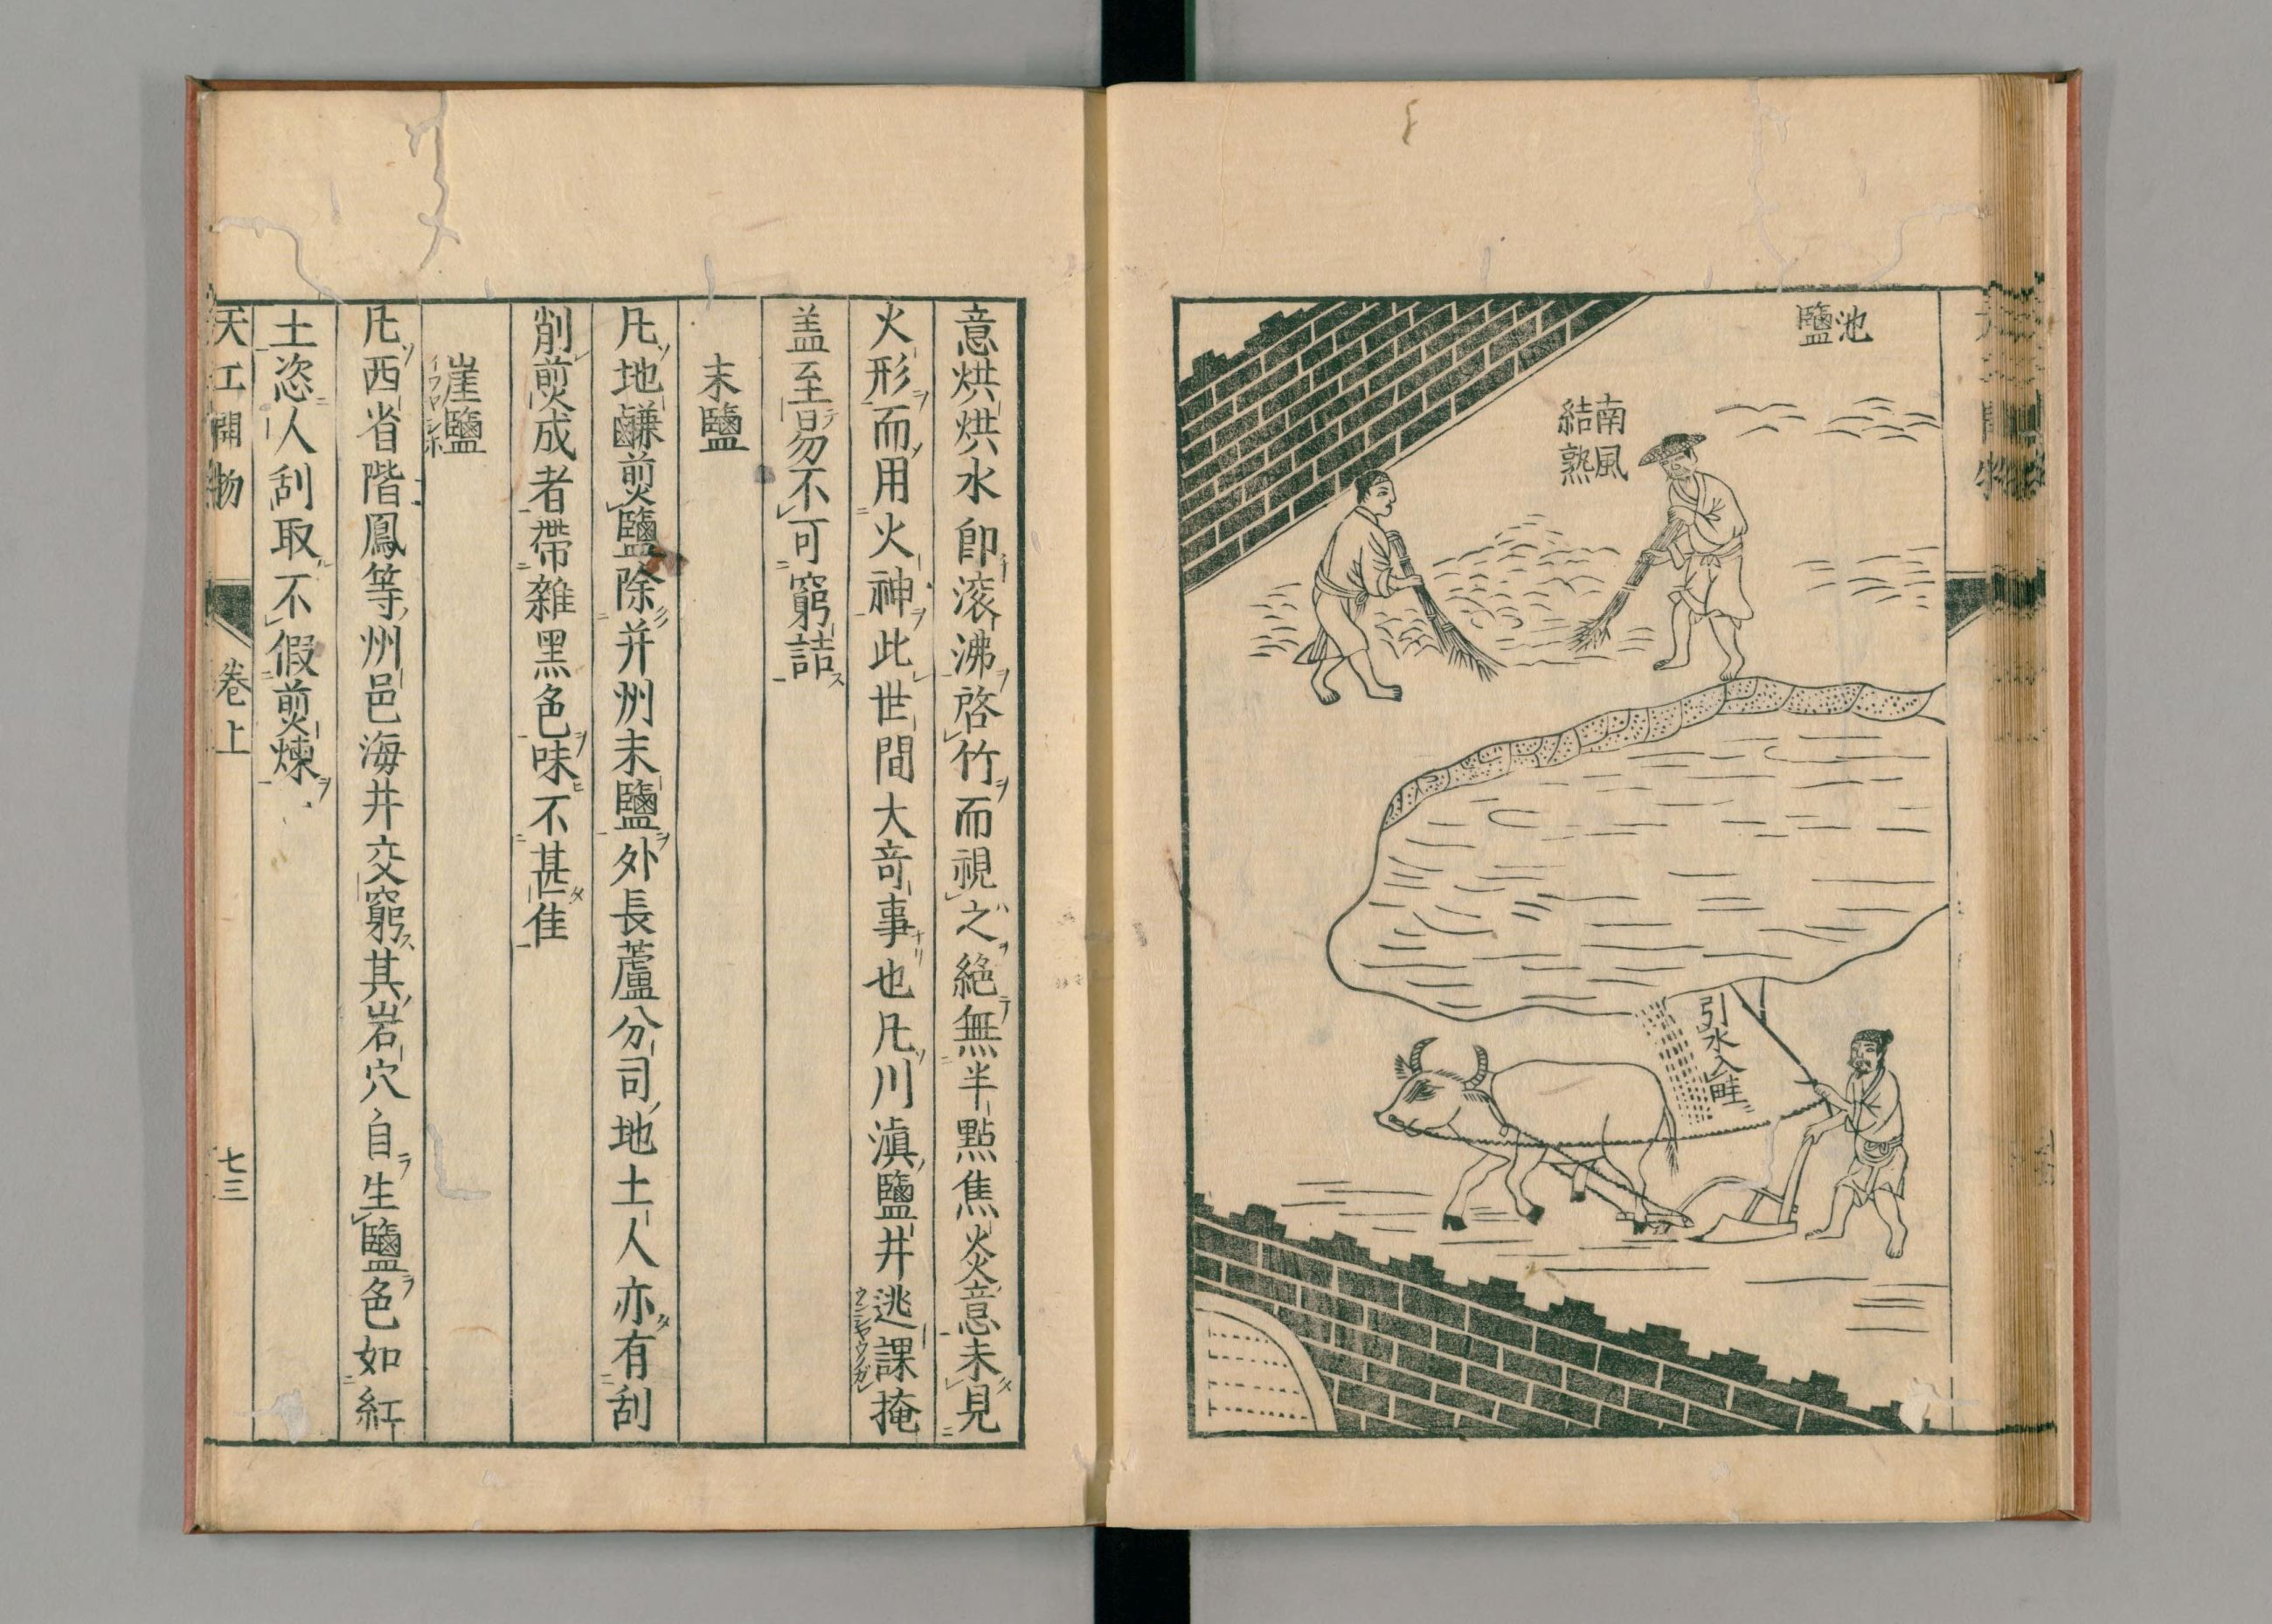 池鹽
南風
結熟
引水入畦
意烘烘水卽滾沸啓竹而視之絕無半點焦炎意未見
火形而用火神此世間大奇事也凡川滇鹽井逃課掩
盖至易不可窮詰
末鹽
凡地鹻煎鹽除并州末鹽外長蘆分司地土人亦有刮
削煎成者帶雜黑色味不甚佳
崖鹽
凡西省階鳳等州邑海井交窮其岩穴自生鹽色如紅
土恣人刮取不假煎煉
天工開物 卷上 七三